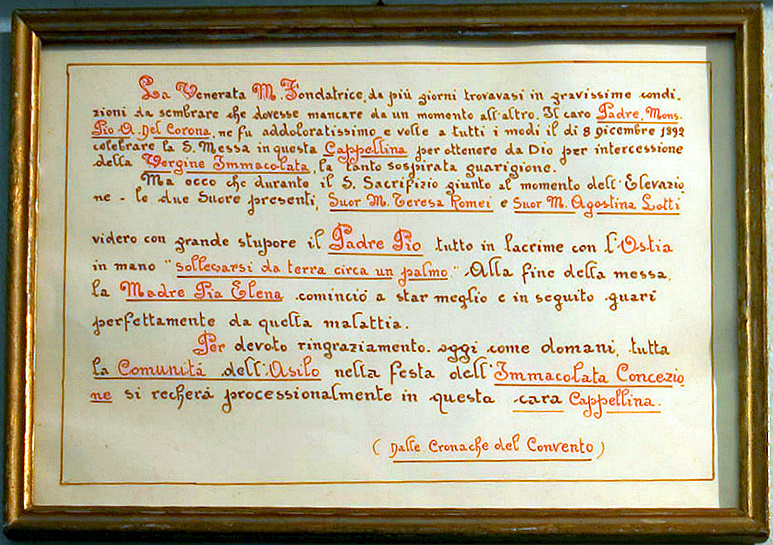 La Venerata M. Fondatrice, da più giorni trovavasi in gravissime condi.
zioni da sembrare che dovesse mancare da un momento all'altro. Il caro Padre, Mons.
Pio A. Del Corona, ne fu addoloratissimo e volle a tutti i modi il dì 8 Dicembre 1892
celebrare la S. Messa in questa Cappellina per ottenere da Dio per intercessione
della Vergine Immacolata, la tanto sospirata guarigione.
Ma ecco che durante il S. Sacrifizio giunto al momento dell'Elevazio
ne - le due Suore presenti, Suor M. Teresa Romei e Suor M. Agostina Lotti
videro con grande stupore il Padre Pio tutto in lacrime con l'Ostia
in mano "sollevarsi da terra circa un palmo". Alla fine della messa,
la Madre Pia Elena cominciò a star meglio e in seguito guarì
perfettamente da quella malattia.
Per devoto ringraziamento. oggi come domani, tutta
la Comunità dell'Asilo nella festa dell'Immacolata Concezio
ne si recherà processionalmente in questa cara Cappellina.
( Dalle Cronache del Convento )